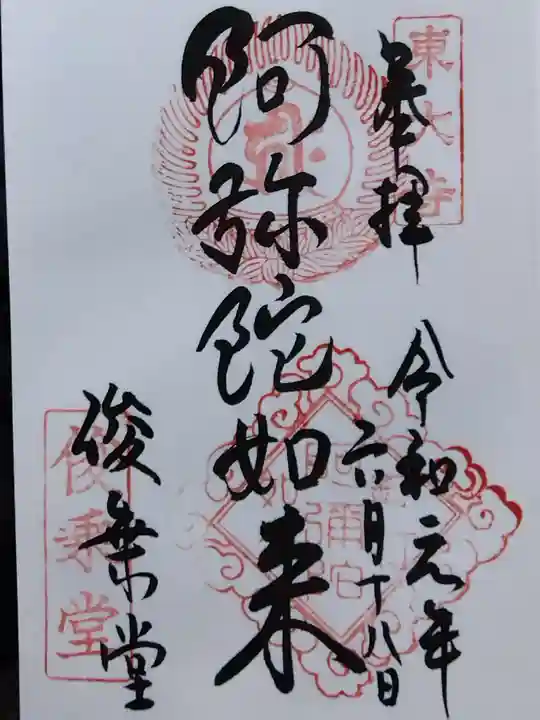 東大寺
奉拝
令和元年
六月十八日
阿弥陀如来
俊乗堂
俊乗堂